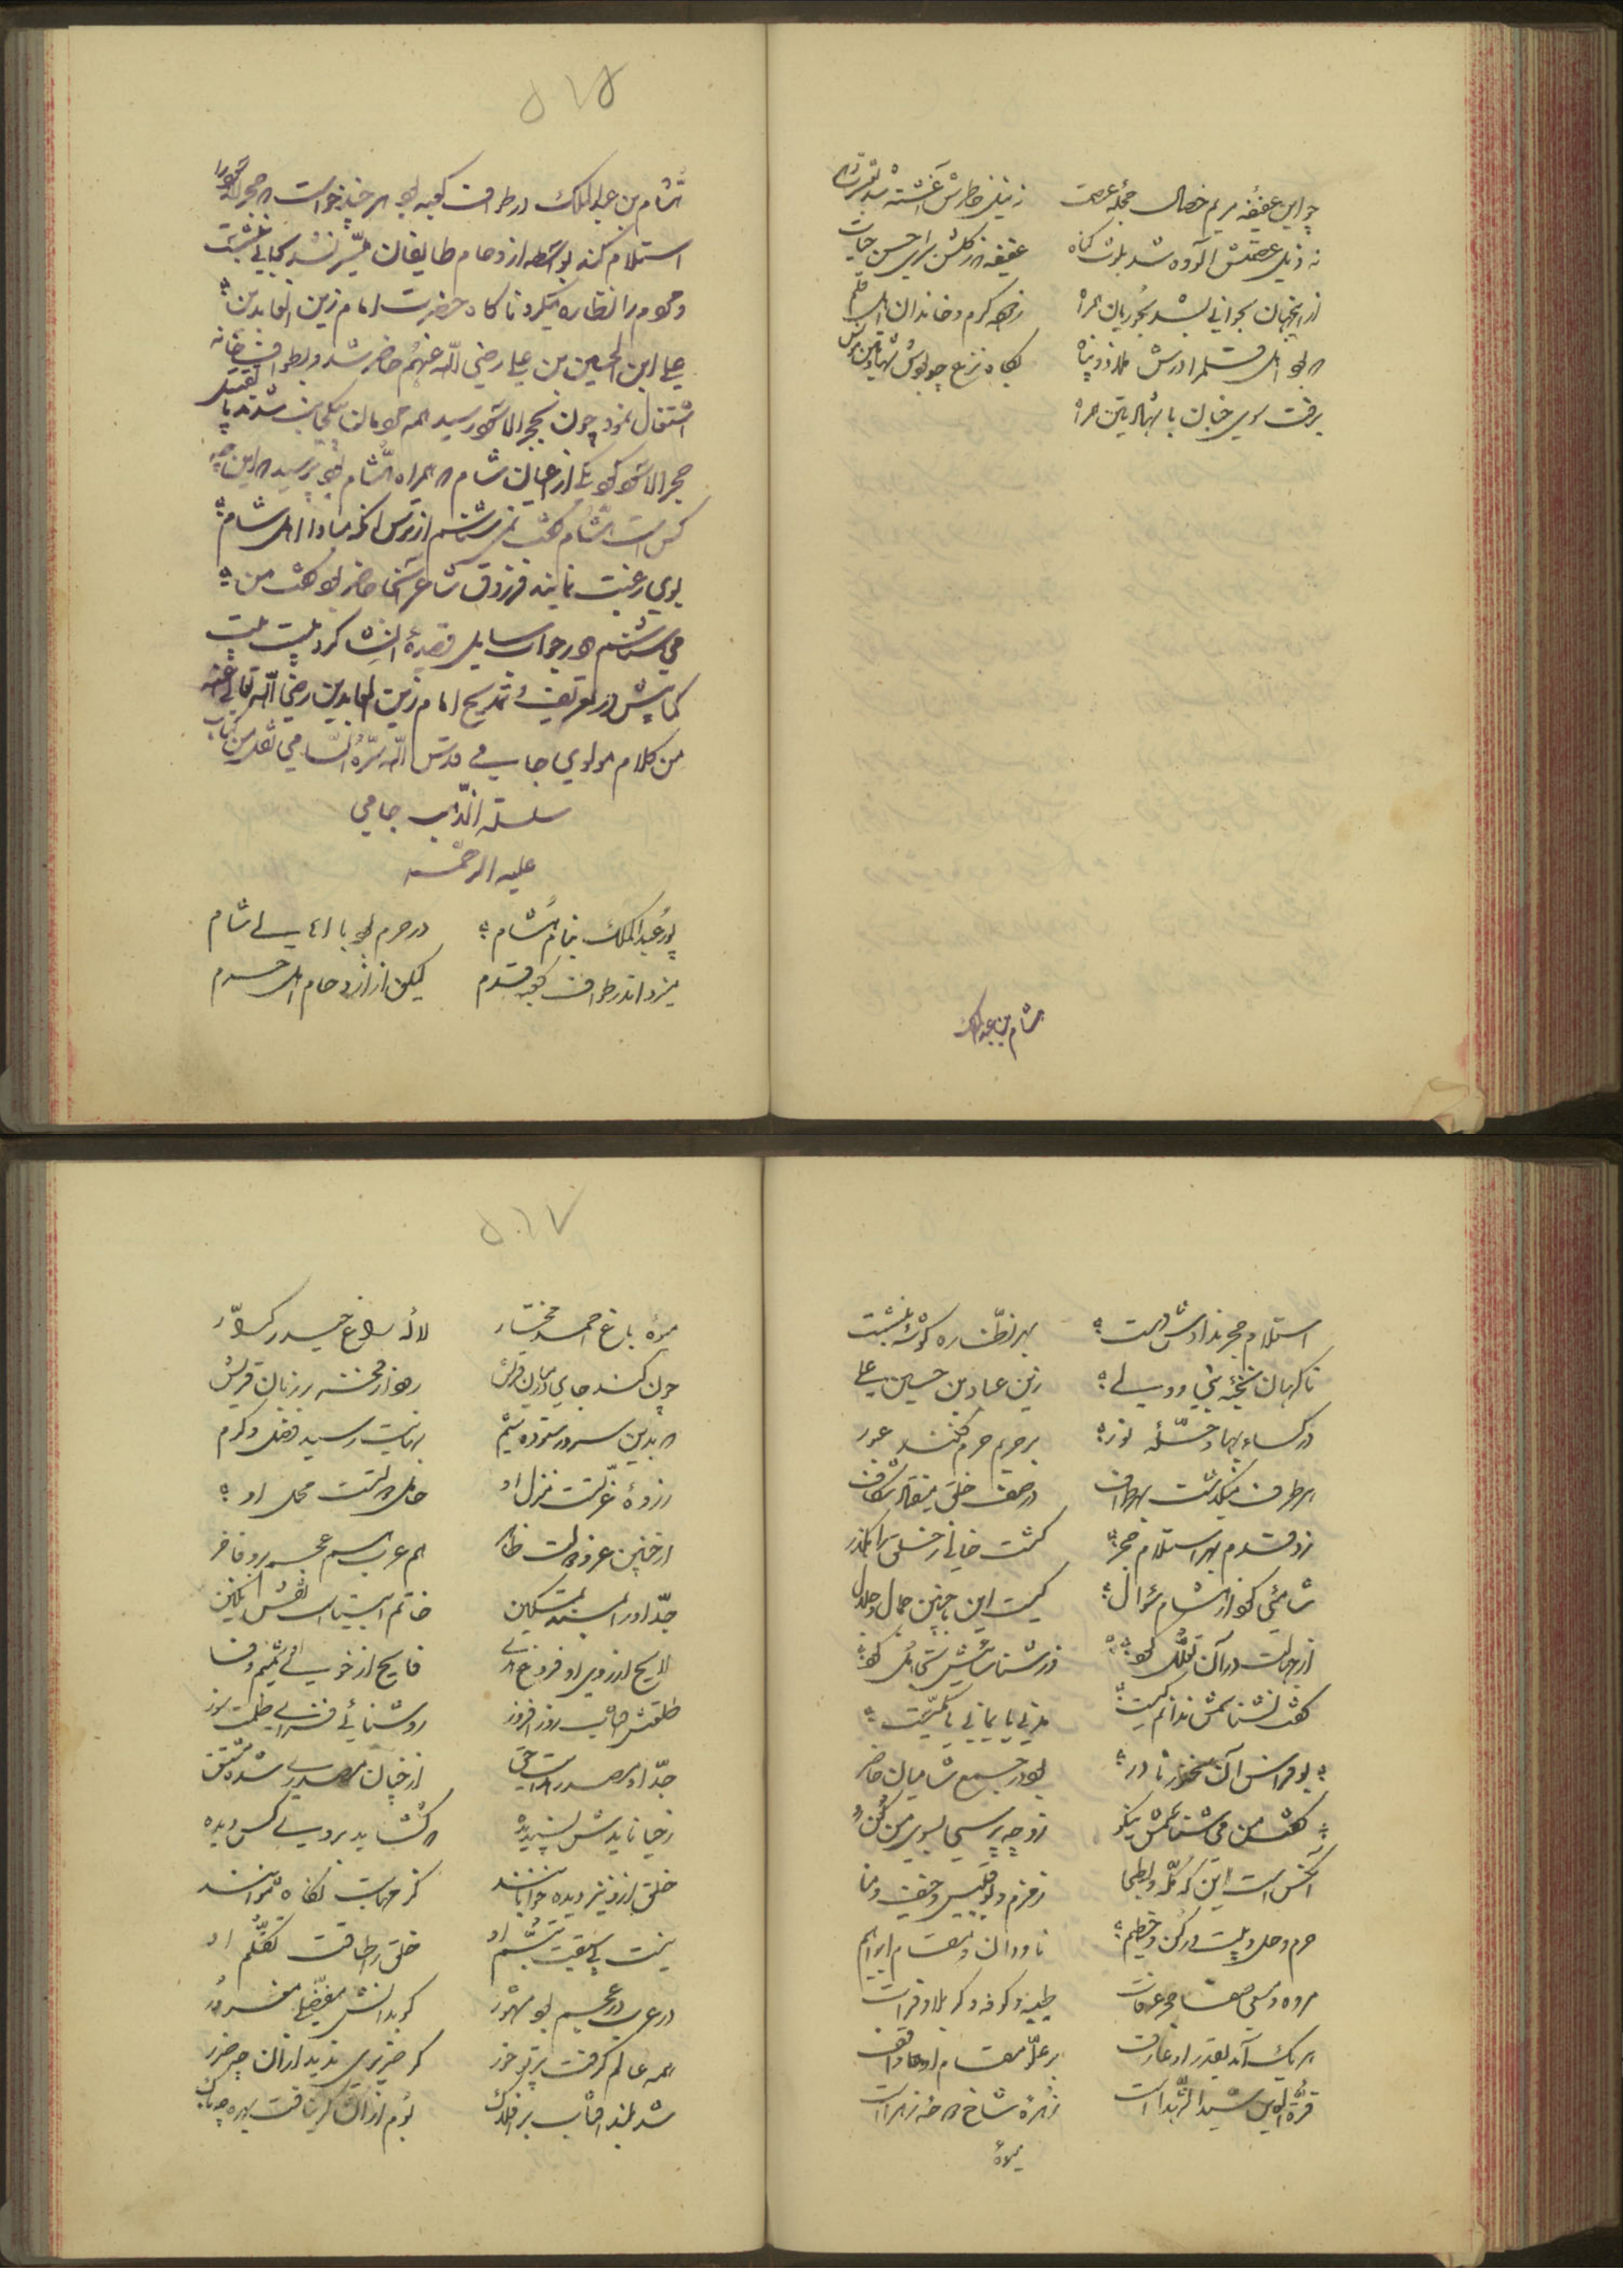 چو این عفیفه مریم خصال حجله عصمت
نه ذیل عصمتش آلوده شد بلوث گناه
عفیفه
از اینجهان بجوانی بشد بحوریان همراه
زهی کرم و خاندان اهل
برفت سوی جنان با
هشام بن عبدالملک
۵۱۵
هشام بن عبدالملک در طواف کعبه بود هر چند خواست که حجرالاسود را
استلام کند بواسطه ازدحام طایفان میسر نشد بجایی بنشست
و مردم را نظاره میکرد ناگاه حضرت امام زین العابدین
علی ابن الحسین بن علی رضی الله عنهم حاضر شد و بطواف خانه
اشتغال نمود چون بحجرالاسود رسید همه مردمان یکجانب شدند تا تقبیل
حجرالاسود کرد یکی از اعیان شام که همراه هشام بود پرسید که این چه
کس است هشام گفت نمی شناسم از ترس آنکه مبادا اهل شام
بوی رغبت نمایند فرزدق شاعر آنجا حاضر بود گفت من
می شناسم و در جواب سایل قصیدهٔ انشا کرد بیست بیت
کمابیش در تعریف و تمدیح امام زین العابدین رضی الله تعالی عنه
من کلام مولوی جامی قدس الله سره السامی نقل من کتاب
سلسلة الذهب جامی
علیه الرحمه
پور عبدالملک بنام هشام در حرم بود با اهالی شام
میزد اندر طواف کعبه قدم لیکن از ازدحام اهل حرم
استلام حجر ندادش دست بهر نظاره گوشهٔ بنشست
ناگهان نخبهٔ نبی و ولی زین عباد بن حسین علی
در کساء بها و حلّهٔ نور بر حریم حرم فکند عبور
هر طرف میگذشت بهر طواف در صف خلق میفتاد شکاف
زد قدم بهر استلام حجر گشت خالی ز خلق راه گذر
شامیی کرد از هشام سؤال کیست این با چنین جمال و جلال
از جهالت در آن تعلل کرد وز شناسائیش تجاهل کرد
گفت نشناسمش ندانم کیست مدنی یا یمانی یا مکیست
بوفراس آن سخنور نادر بود در جمع شامیان حاضر
گفت من می شناسمش نیکو زو چه پرسی بسوی من کن رو
آنکس است این که مکه و بطحا زمزم و بوقبیس و خیف و منا
حرم و حل و بیت و رکن و حطیم ناودان و مقام ابراهیم
مروه و سعی صفا حجر عرفات طیبه و کوفه و کربلا و فرات
هر یک آمد بقدر او عارف بر علو مقام او واقف
قرة العین سید الشهداست زهرهٔ شاخ دوحهٔ زهراست
میوهٔ
۵۱۷
میوه باغ احمد مختار لالهٔ راغ حیدر کرار
چون کند جای در میان قریش رود از فخر بر زبان قریش
که بدین سرور ستوده شیم بنهایت رسید فضل و کرم
ذروهٔ عزتست منزل او حامل دولتست محمل او
از چنین عز و دولت ظاهر هم عرب هم عجم بود قاصر
جد او را بمسند تمکین خاتم انبیاست نقش نگین
لایح از روی او فروغ هدی فایح از خوی او شمیم وفا
طلعتش آفتاب روز افروز روشنائی فزای ظلمت سوز
جد او مصدر هدایت حق از چنان مصدری شده مشتق
ز حیا نایدش پسندیده که گشاید بروی کس دیده
خلق ازو نیز دیده خوابانند کز مهابت نگاه نتوانند
نیست بی سبقت تبسم او خلق را طاقت تکلم او
در عرب در عجم بود مشهور گو مدانش مغفّلی مغرور
همه عالم گرفت پرتو خور گر ضریری ندید از آن چه ضرر
شد بلند آفتاب بر افلاک بوم از آن گر نیافت بهره چه باک